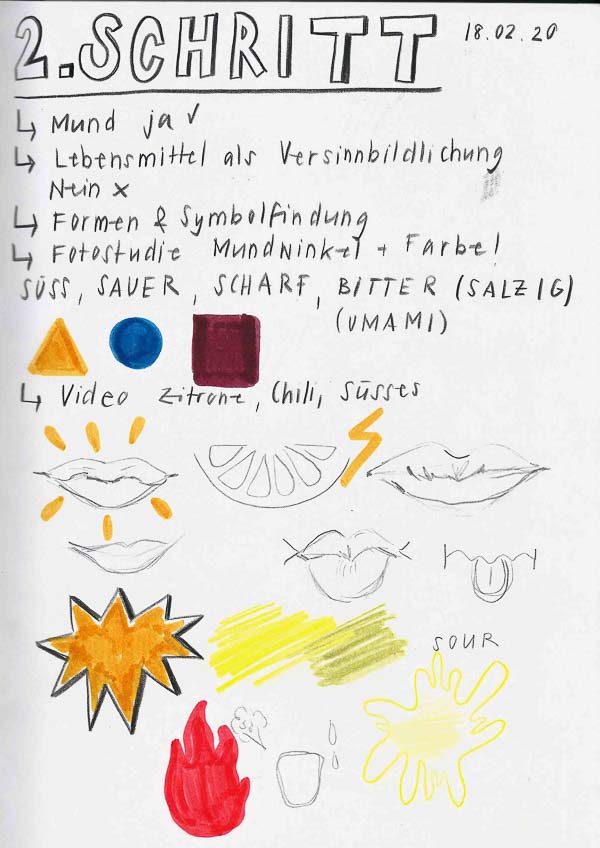 2. SCHRITT
18.02.20
↳ Mund ja ✓
↳ Lebensmittel als Versinnbildlichung
Nein x
↳ Formen & Symbolfindung
↳ Fotostudie Mundwinkel + Farbe!
SÜSS, SAUER, SCHARF, BITTER (SALZIG)
(UMAMI)
↳ Video Zitrone, Chili, Süsses
SOUR